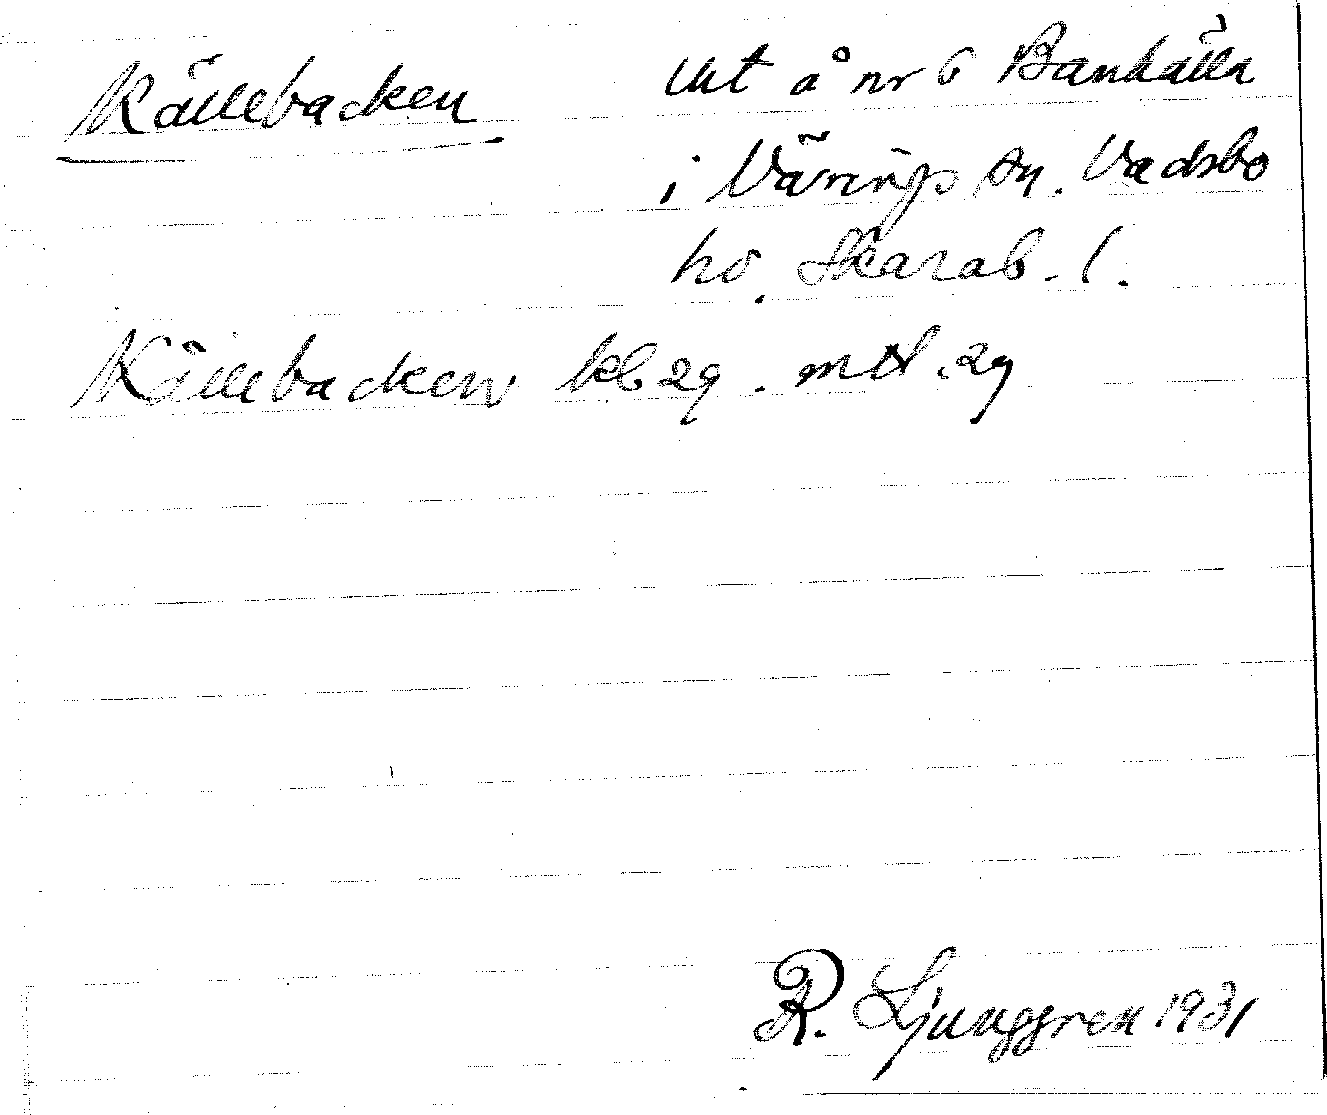 Källebacken
Utt å nr 6 Bankälla
i Värings sn. Vadsbo
hd. Skarab. l.
Källebacken kb 29. mtl. 29
R. Ljunggren 1931